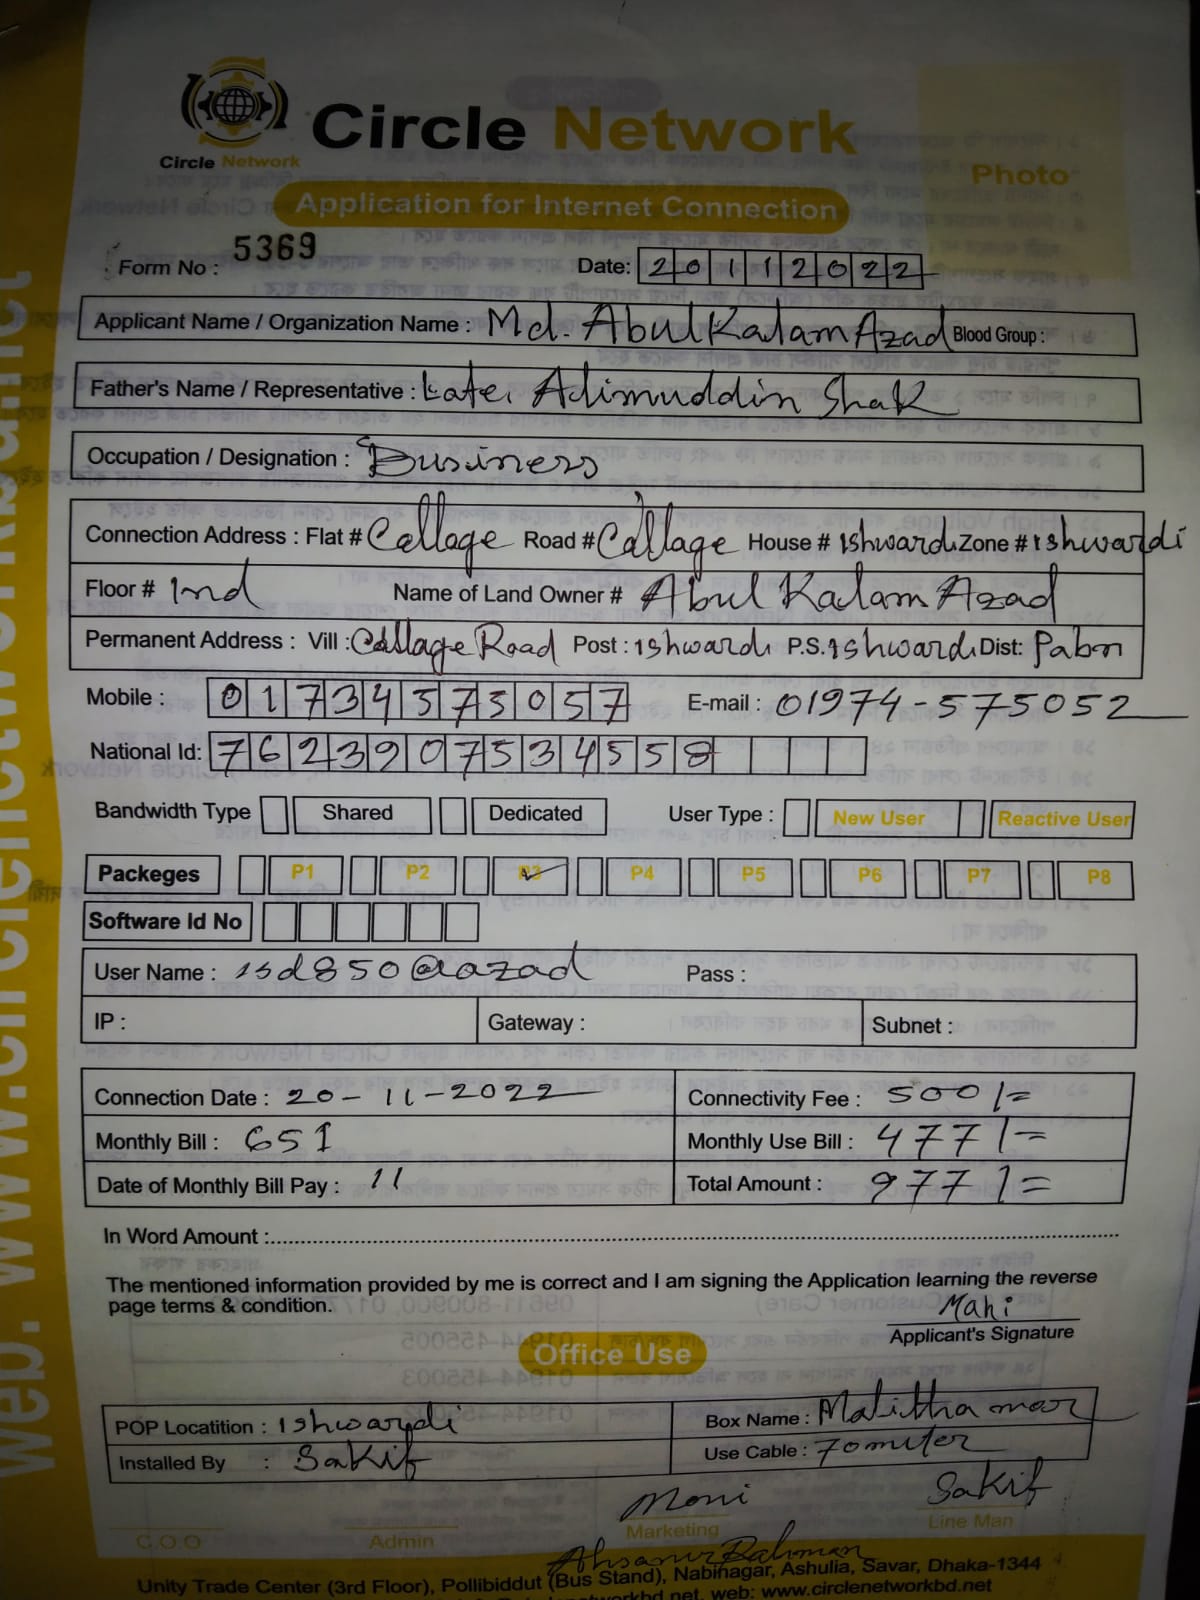 Circle Network
Circle Network
Photo
Application for Internet Connection
Form No : 5369
Date: 20112022
Applicant Name / Organization Name : Md. Abul Kalam Azad Blood Group :
Father's Name / Representative : Late. Adimuddin Shak
Occupation / Designation : Business
Connection Address : Flat # Collage Road # Collage House # Ishwardi Zone # Ishwardi
Floor # 1nd Name of Land Owner # Abul Kalam Azad
Permanent Address : Vill : Collage Road Post : Ishwardi P.S. Ishwardi Dist: Pabn
Mobile : 01734575057 E-mail : 01974-575052
National Id: 7623907534558
Bandwidth Type Shared Dedicated User Type : New User Reactive User
Packeges P1 P2 P3 P4 P5 P6 P7 P8
Software Id No
User Name : isd850@azad Pass :
IP : Gateway : Subnet :
Connection Date : 20-11-2022 Connectivity Fee : 500/=
Monthly Bill : 651 Monthly Use Bill : 477/=
Date of Monthly Bill Pay : 11 Total Amount : 977/=
In Word Amount :
The mentioned information provided by me is correct and I am signing the Application learning the reverse
page terms & condition.
Mahi
Applicant's Signature
Office Use
POP Locatition : Ishwardi Box Name : Malittha mor
Installed By : Sakif Use Cable : 70 miter
Moni Sakif
C.O.O Admin Marketing Line Man
Ahsanur Rahman
Unity Trade Center (3rd Floor), Pollibiddut (Bus Stand), Nabinagar, Ashulia, Savar, Dhaka-1344
web: www.circlenetworkbd.net
web: www.circlenetworkbd.net